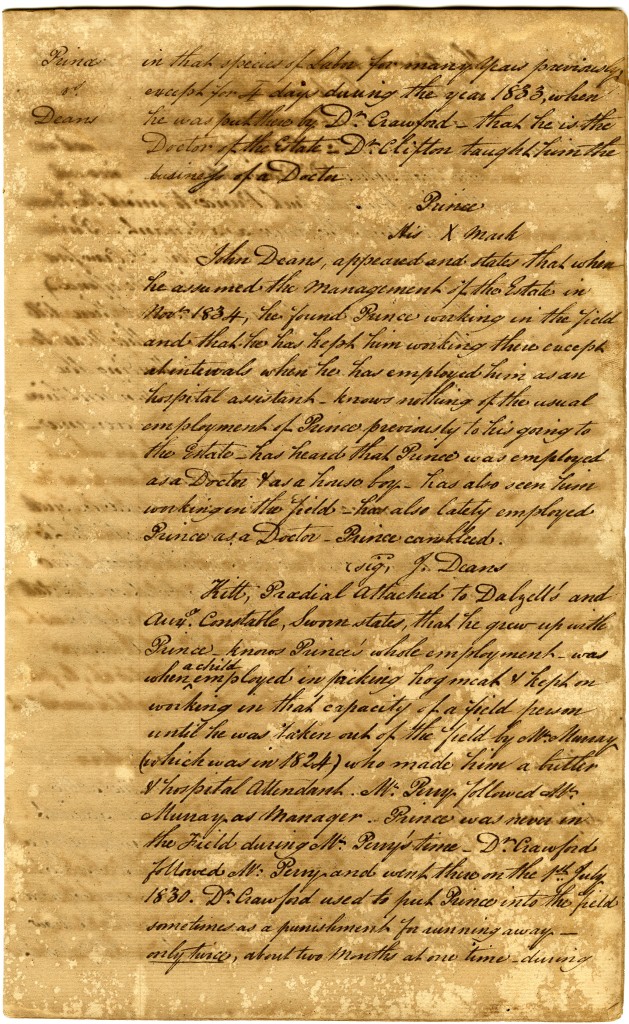 Prince
vs
Deans
in that species of Labr for many years previously
except for 4 days during the year 1833, when
he was put there by Dr. Crawford – that he is the
Doctor of the Estate – Dr. Clifton taught him the
business of a Doctor.
Prince
His X Mark
John Deans, appeared and states that when
he assumed the Management of the Estate in
Novr. 1834, he found Prince working in the field
and that he has kept him working there except
at intevals when he has employed him as an
hospital assistant – knows nothing of the usual
employment of Prince previously to his going to
the Estate – has heard that Prince was employed
as a Doctor & as a house boy – has also seen him
working in the field – has also lately employed
Prince as a Doctor – Prince can bleed.
(sigd. J. Deans
Kitt, Prædial Attached to Dalzell's and
Auxy. Constable, Sworn states, that he grew up with
Prince – knows Prince's whole employment – was
a child
when employed in picking hog meat & kept on
working in that capacity of a field person
until he was taken out of the field by Mr. Murray
(which was in 1824) who made him a butler
& hospital Attendant. Mr. Perry followed Mr.
Murray as Manager – Prince was never in
the Field during Mr. Perry's time – Dr. Crawford
followed Mr. Perry and went there on the 1st July
1830. Dr. Crawford used to put Prince into the field
sometimes as a punishment for running away –
only twice, about two Months at one time – during